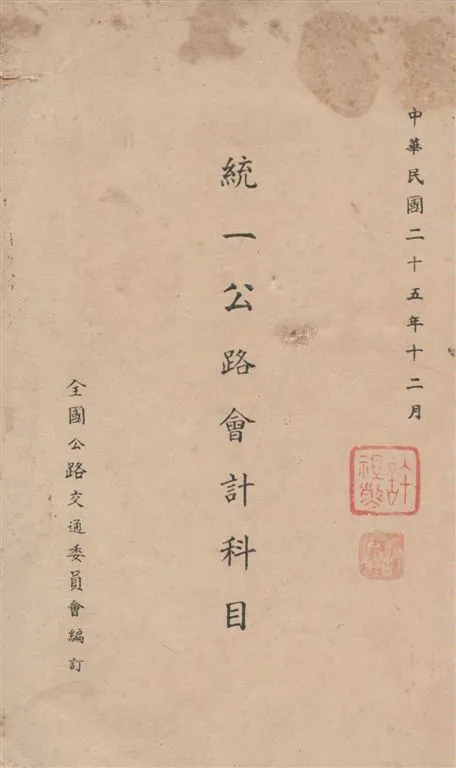 中華民國二十五年十二月
統一公路會計科目
全國公路交通委員會編訂